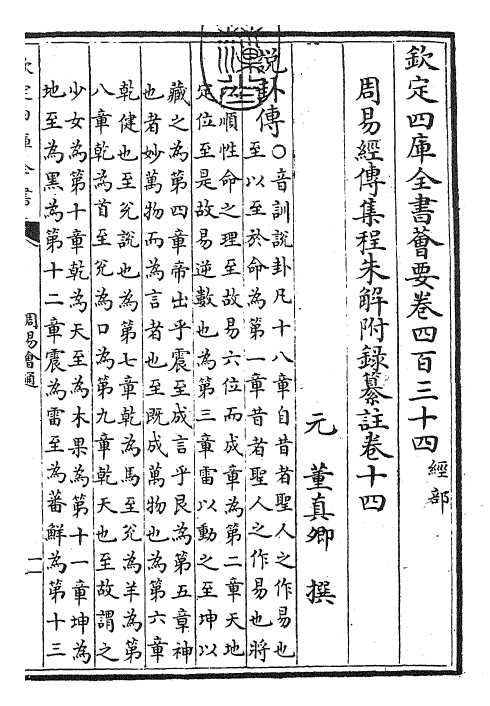 欽定四庫全書薈要卷四百三十四 經部
周易經傳集程朱解附録纂註卷十四
元 董真卿 撰
説卦傳○音訓説卦凡十八章自昔者聖人之作易也
至以至於命為第一章昔者聖人之作易也將
順性命之理至故易六位而成章為第二章天地
定位至是故易逆數也為第三章雷以動之至坤以
藏之為第四章帝出乎震至成言乎艮為第五章神
也者妙萬物而為言者也至既成萬物也為第六章
乾健也至兊説也為第七章乾為馬至兊為羊為第
八章乾為首至兊為口為第九章乾天也至故謂之
少女為第十章乾為天至為木果為第十一章坤為
地至為黑為第十二章震為雷至為蕃鮮為第十三
欽定四庫全書
周易會通
一